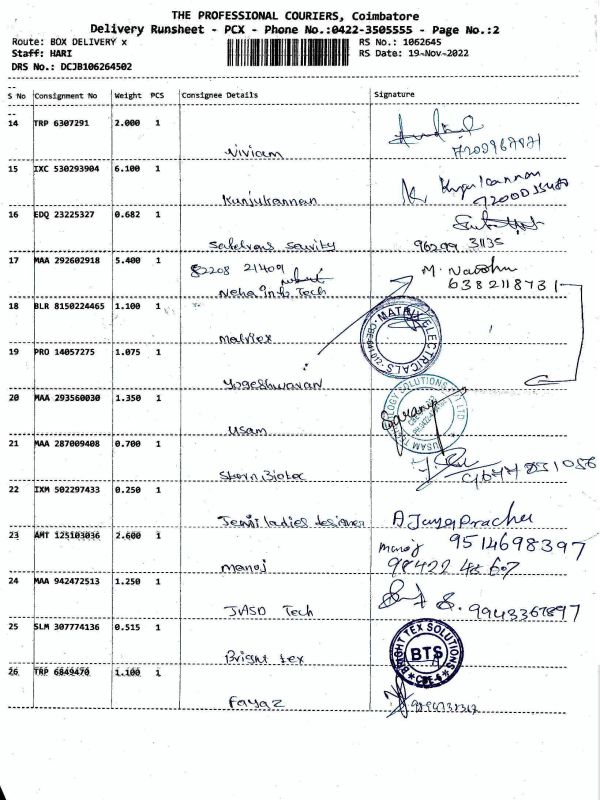 THE PROFESSIONAL COURIERS, Coimbatore
Delivery Runsheet - PCX - Phone No.:0422-3505555 - Page No.:2
Route: BOX DELIVERY x RS No.: 1062645
Staff: HARI RS Date: 19-Nov-2022
DRS No.: DCJB106264502
S No Consignment No Weight PCS Consignee Details Signature
14 TRP 6307291 2.000 1
Viviam
15 IXC 530293904 6.100 1
Kunjukannan
16 EDQ 23225327 0.682 1
96299 31135
17 MAA 292602918 5.400 1 82208 21409 M.
Neha info Tech 6382118731
18 BLR 8150224465 1.100 1
MATRIX ELECTRICALS
19 PRO 14057275 1.075 1
Yogeshwaran
20 MAA 293560030 1.350 1
usam
21 MAA 287009408 0.700 1
22 IXM 502297433 0.250 1
ladies designer
23 AMT 125103036 2.600 1 Manoj 9514698397
manoj
24 MAA 942472513 1.250 1
JASD Tech 9943367897
25 SLM 307774136 0.515 1
Bright tex BRIGHT TEX SOLUTIONS BTS CBE-6
26 TRP 6849470 1.100 1
Fayaz